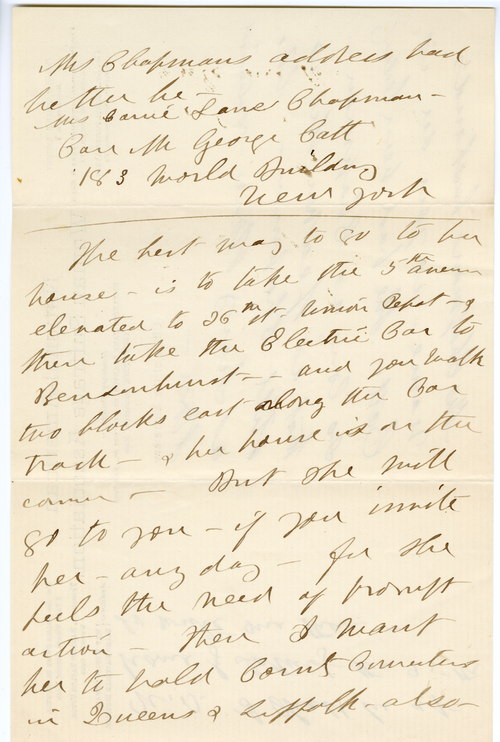 Mrs Chapman's address had
better be —
Mrs Carrie Lane Chapman —
Care Mr George Catt
183 World Building
New York
The best way to go to her
house — is to take the 5th avenue
elevated to 36th st. Union Depot — &
then take the Electric Car to
Bensonhurst — and you walk
two blocks east along the Car
track — & her house is on the
corner — But she will
go to you — if you invite
her — any day — for she
feels the need of prompt
action — Then I want
her to hold County Conventions
in Queens & Suffolk — also —